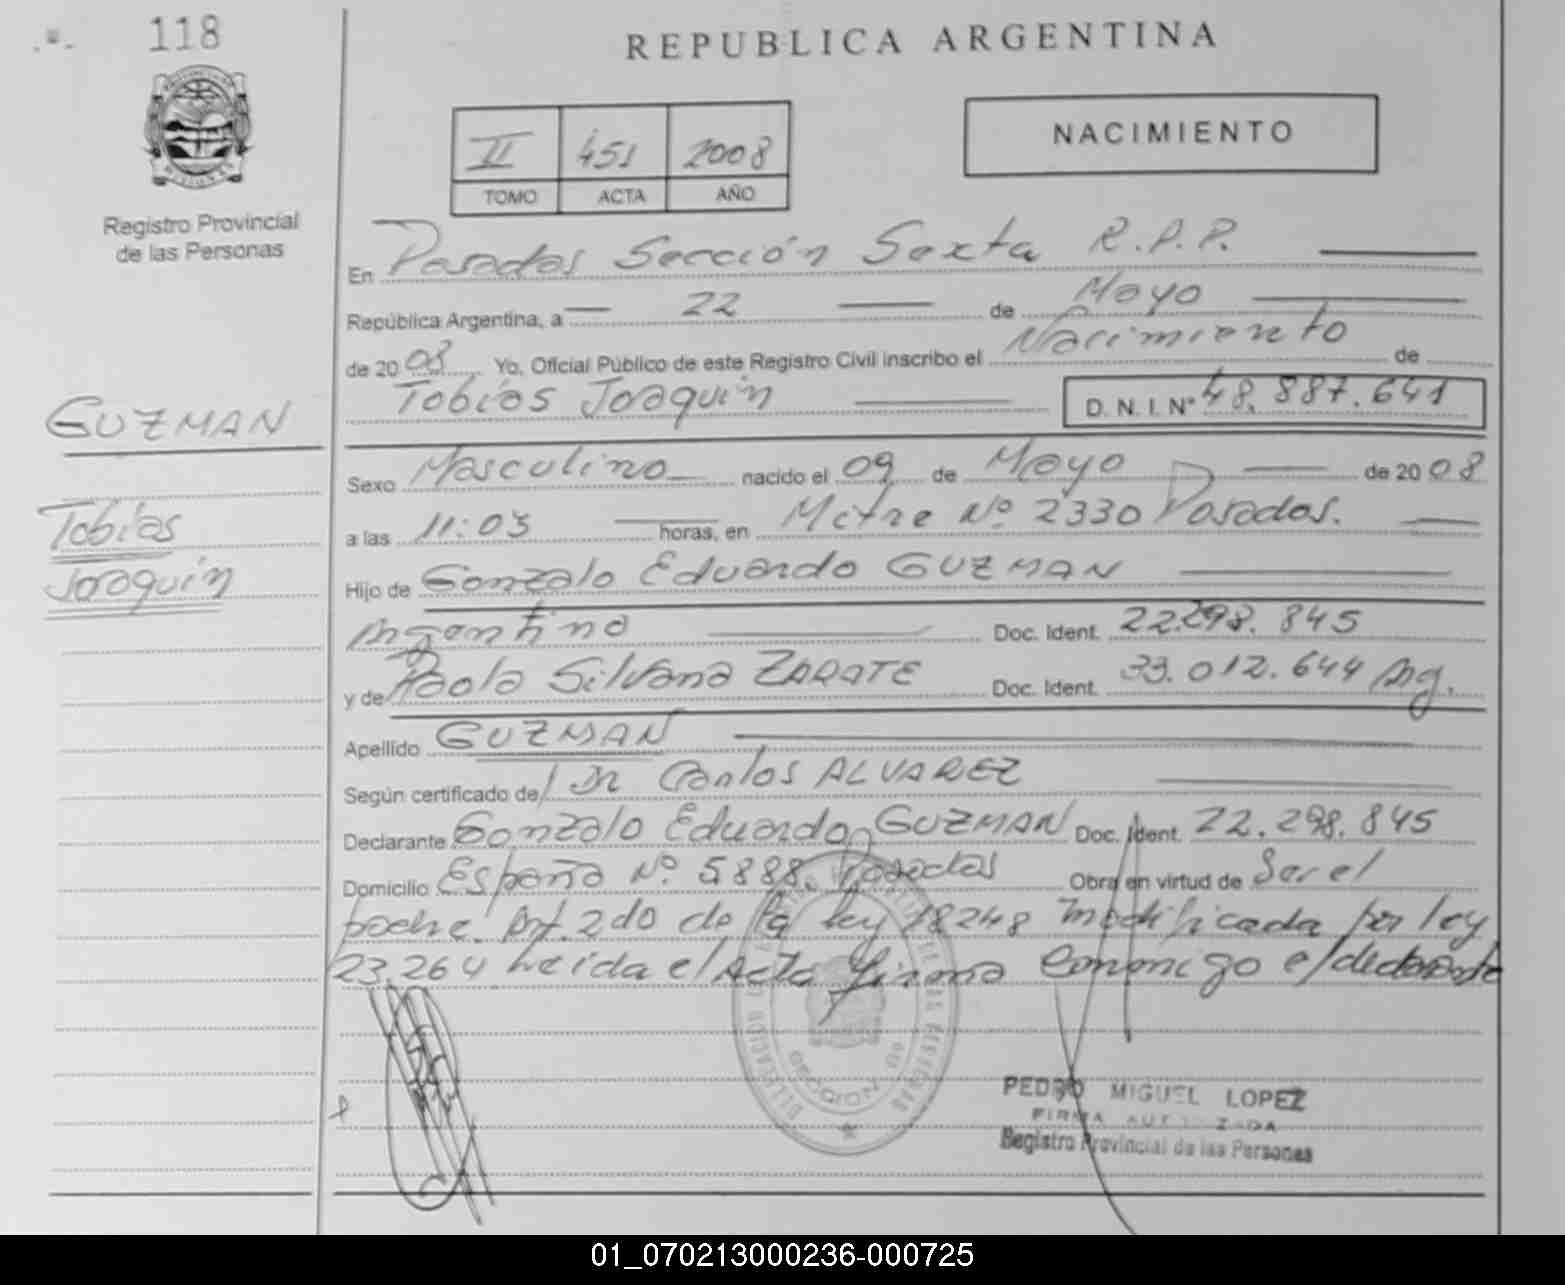 118
REPUBLICA ARGENTINA
II 451 2008
TOMO ACTA AÑO
NACIMIENTO
Registro Provincial
de las Personas
En Posadas Sección Sexta R.P.P.
República Argentina, a 22 de Mayo
de 2008 Yo, Oficial Público de este Registro Civil inscribo el Nacimiento de
Tobías Joaquín D. N. I. Nº 48.887.641
GUZMAN
Tobías
Joaquín
Sexo Masculino nacido el 09 de Mayo de 2008
a las 11:05 horas, en Mitre Nº 2330 Posadas.
Hijo de Gonzalo Eduardo GUZMAN
Argentino Doc. Ident. 22.298.845
y de Paola Silvana ZARATE Doc. Ident. 33.012.644 Arg.
Apellido GUZMAN
Según certificado de Dr Carlos ALVAREZ
Declarante Gonzalo Eduardo GUZMAN Doc. Ident. 22.298.845
Domicilio España Nº 5888 Posadas Obra en virtud de Ser el
padre. Art. 2do de la ley 18248 modificada por ley
23.264 Leida el Acta firma conmigo el declarante
DELEGACION
SECCION 6ª
PEDRO MIGUEL LOPEZ
FIRMA AUTORIZADA
Registro Provincial de las Personas
01_070213000236-000725